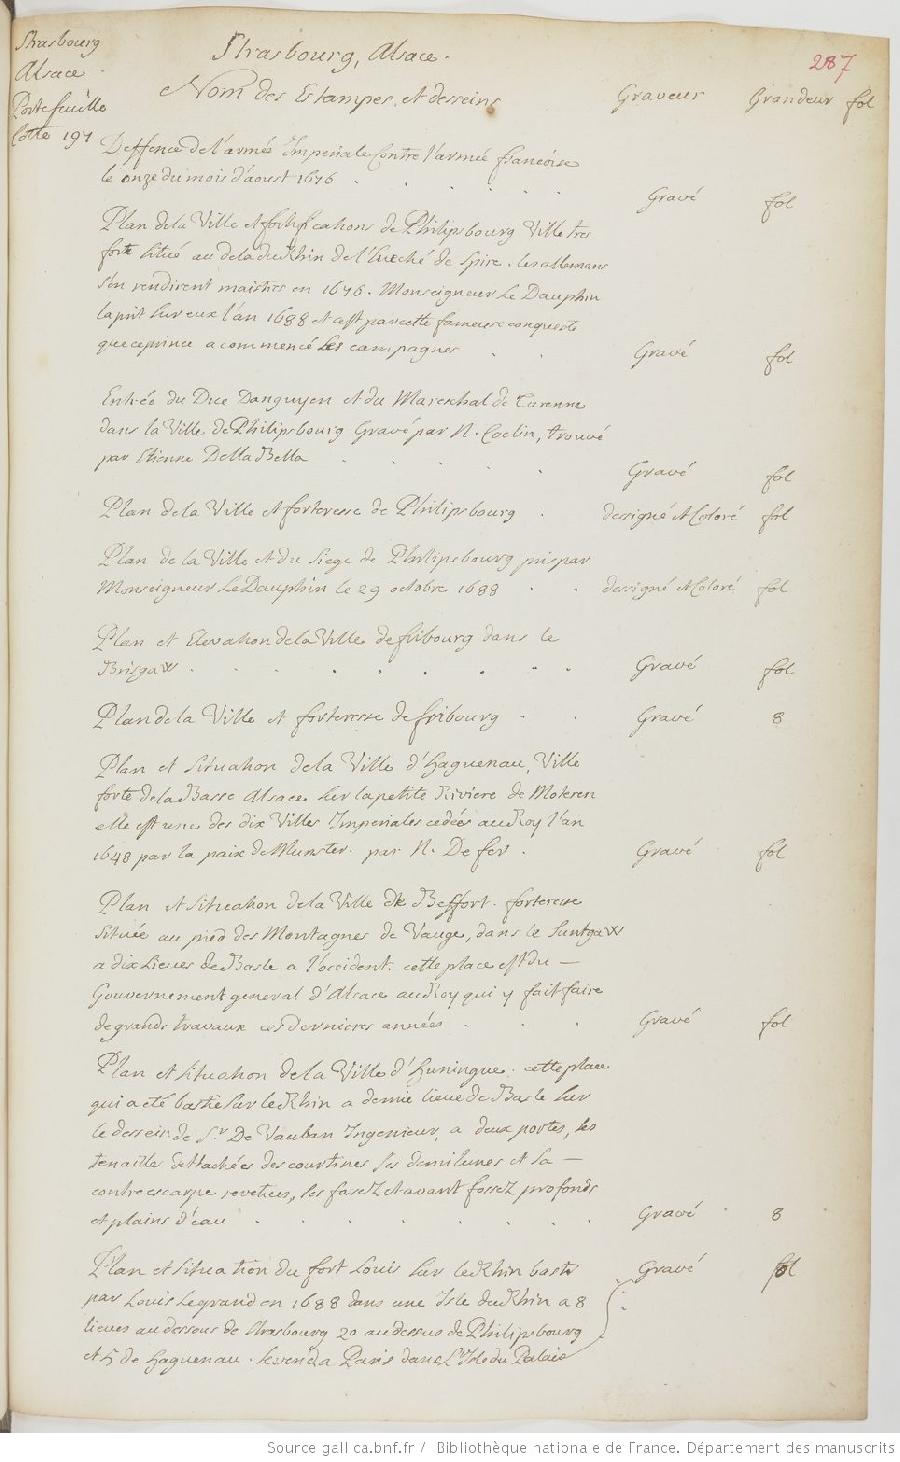 Strasbourg
Alsace
Portefeuille
Cotte 191
Strasbourg, Alsace.
287
Nom des Estampes et desseins Graveur Grandeur fol
Deffence de l'armée Imperiale contre l'armée francoise
le onze du mois d'aoust 1676 . . . . . Gravé fol
Plan de la Ville et fortifications de Philipsbourg Ville tres
forte située au dela du Rhin de l'Eveché de Spire. les allemans
s'en rendirent maistres en 1676. Monseigneur Le Dauphin
la prit sur eux l'an 1688 et c'est par cette fameuse conqueste
que ce prince a commencé ses campagnes . . Gravé fol
Entrée du Duc Danguyen et du Mareschal de Turenne
dans la Ville de Philipsbourg Gravé par N. Cochin, trouvé
par Etienne Della Bella . . . . Gravé fol
Plan de la Ville et forteresse de Philipsbourg . dessigné et Coloré fol
Plan de la Ville et du siege de Philipsbourg pris par
Monseigneur Le Dauphin le 29 octobre 1688 . . dessigné et Coloré fol
Plan et Elevation de la Ville de fribourg dans le
Brisgaw . . . . . . . . Gravé fol.
Plan de la Ville et forteresse de fribourg . . Gravé 8
Plan et situation de la Ville d'haguenau, Ville
forte de la Basse Alsace sur la petite Riviere de Moteren
elle est une des dix Villes Imperiales cedées au Roy l'an
1648 par la paix de Munster. par N. De fer . Gravé fol
Plan et situation de la Ville de Beffort. forteresse
située au pied des Montagnes de Vauge, dans le Suntgaw
a dix Lieues de Basle a l'occident. cette place est du —
Gouvernement general d'Alsace au Roy qui y fait faire
de grands travaux ces dernieres années . . . Gravé fol
Plan et situation de la Ville d'huningue. cette place
qui a été bastie sur le Rhin a demie lieue de Basle sur
le dessein de Sr. De Vauban Ingenieur, a deux portes, les
tenailles dettachées des courtines ses demilunes et sa —
contrescarpe revetues, ses fossez et avant fossez profonds
et plains d'eau . . . . . . . . Gravé 8
Plan et situation du fort Louis sur le Rhin basti Gravé fol
par Louis Legrand en 1688 dans une Isle du Rhin a 8
lieues au dessous de Strasbourg 20 au dessus de Philipsbourg
et 5 de haguenau. se vend a Paris dans L'Isle du Palais
Source gallica.bnf.fr / Bibliothèque nationale de France. Département des manuscrits